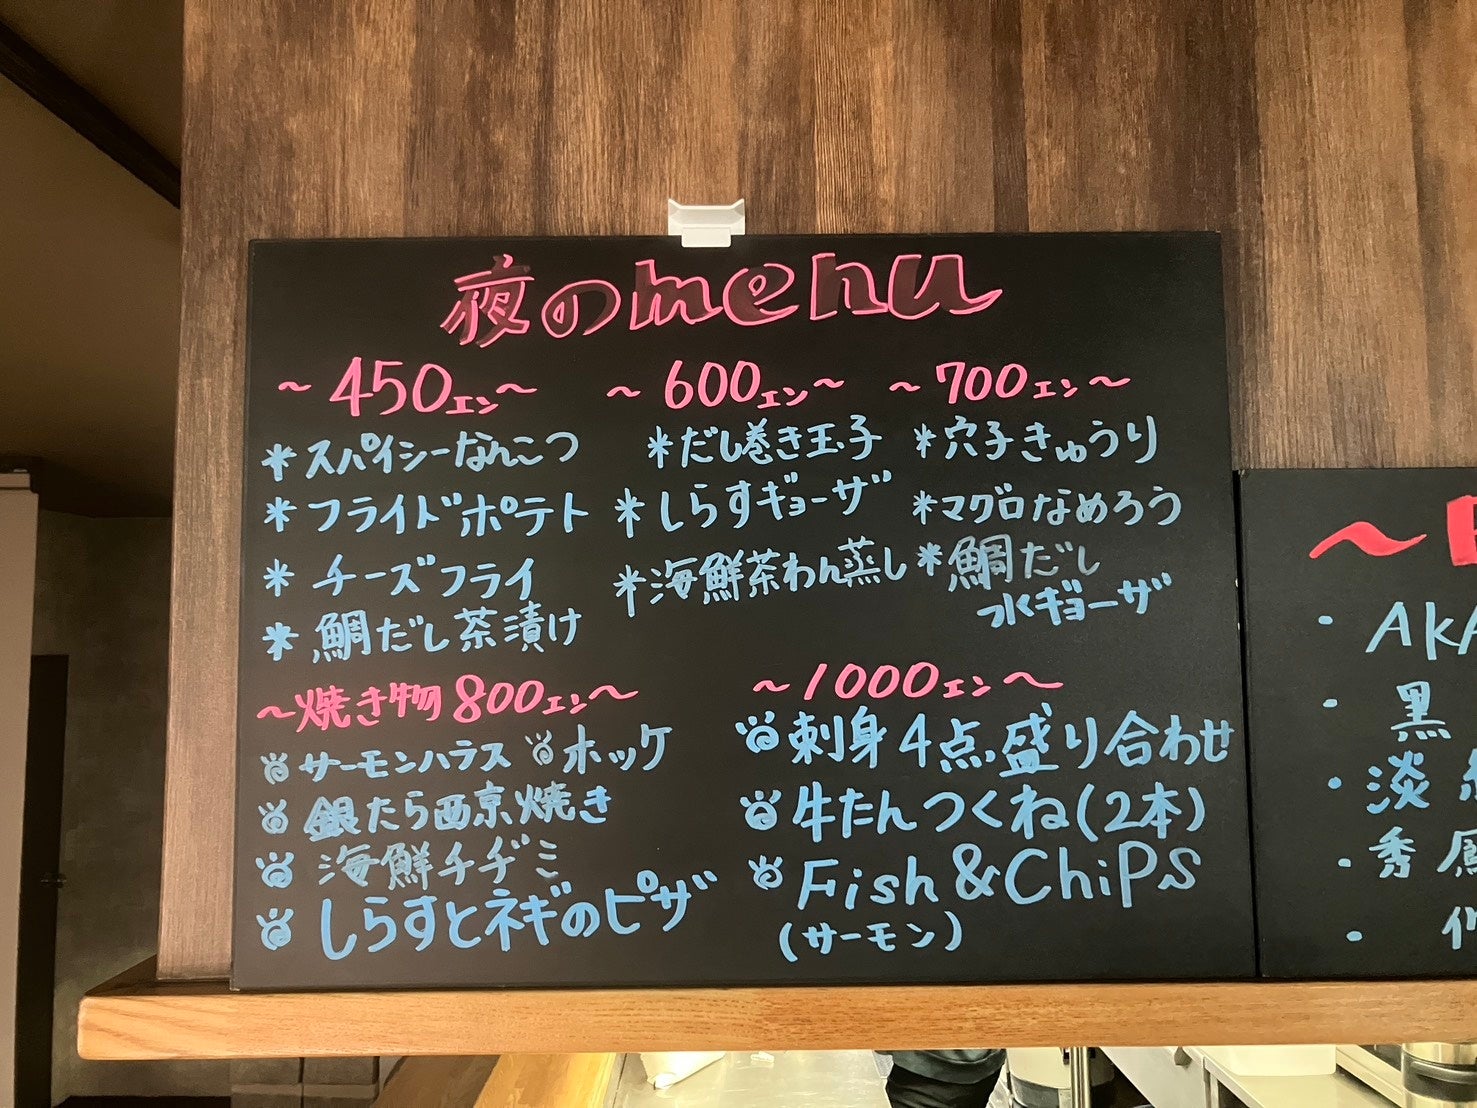 夜のmenu
~450エン~
*スパイシーなんこつ
*フライドポテト
*チーズフライ
*鯛だし茶漬け
~600エン~
*だし巻き玉子
*しらすギョーザ
*海鮮茶わん蒸し
~700エン~
*穴子きゅうり
*マグロなめろう
*鯛だし
水ギョーザ
~焼き物800エン~
サーモンハラス ホッケ
銀たら西京焼き
海鮮チヂミ
しらすとネギのピザ
~1000エン~
刺身4点盛り合わせ
牛たんつくね(2本)
Fish&ChiPs
(サーモン)
・AKA
・黒
・淡
・秀鳳